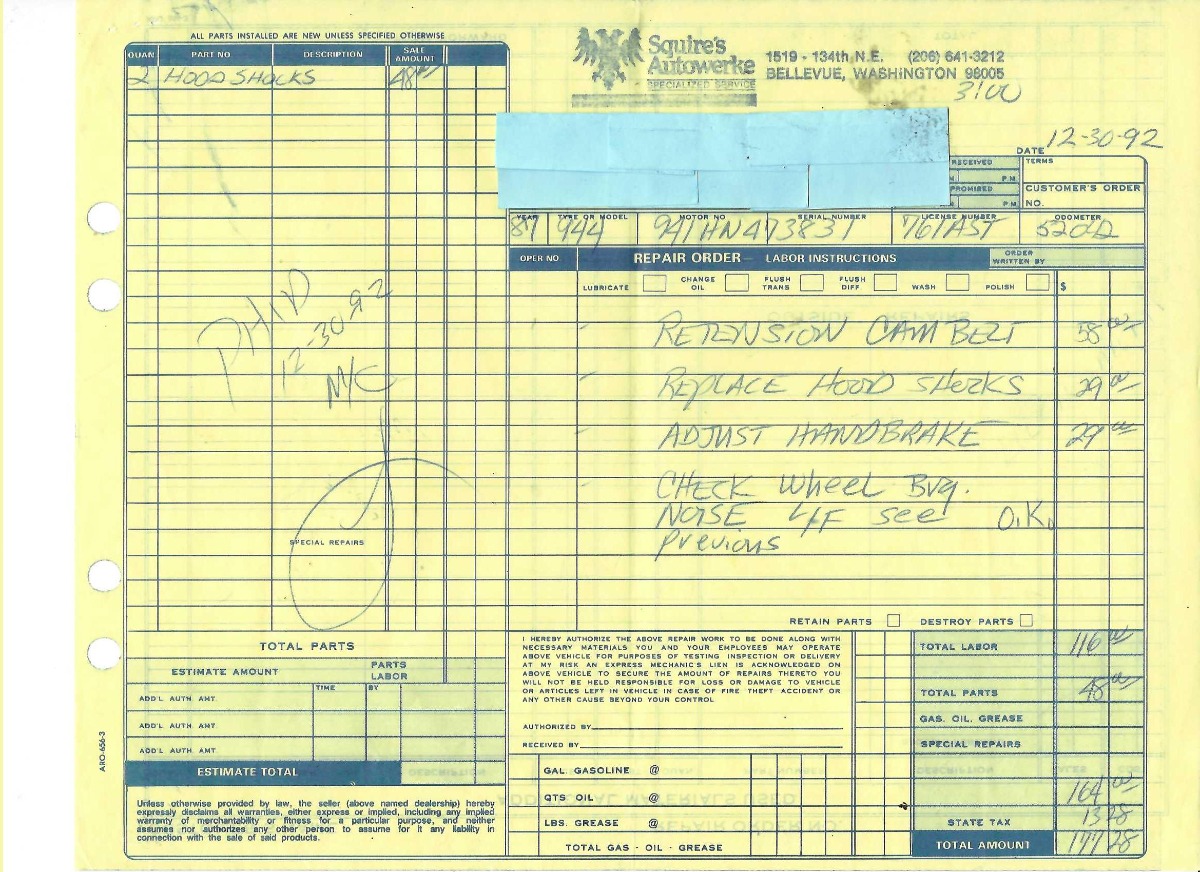 ALL PARTS INSTALLED ARE NEW UNLESS SPECIFIED OTHERWISE
QUAN PART NO DESCRIPTION SALE AMOUNT
2 HOOD SHOCKS 48 00
Squire's
Autowerke
SPECIALIZED SERVICE
1519 - 134th N.E. (206) 641-3212
BELLEVUE, WASHINGTON 98005
3100
DATE 12-30-92
RECEIVED TERMS
P.M.
PROMISED CUSTOMER'S ORDER
P.M. NO.
YEAR TYPE OR MODEL MOTOR NO SERIAL NUMBER LICENSE NUMBER ODOMETER
87 944 941HN473831 761AST
OPER NO. REPAIR ORDER — LABOR INSTRUCTIONS ORDER WRITTEN BY
LUBRICATE CHANGE OIL FLUSH TRANS FLUSH DIFF WASH POLISH $
RETENSION CAM BELT 58 00
REPLACE HOOD SHOCKS 29 00
ADJUST HANDBRAKE 29 00
CHECK Wheel Brg.
NOISE L/F see O.K.
previous
PAID
12-30-92
M/C
SPECIAL REPAIRS
RETAIN PARTS DESTROY PARTS
TOTAL PARTS
ESTIMATE AMOUNT PARTS LABOR
TIME BY
ADD'L AUTH. AMT.
ADD'L AUTH. AMT.
ADD'L AUTH. AMT.
ESTIMATE TOTAL
ARO-656-3
Unless otherwise provided by law, the seller (above named dealership) hereby
expressly disclaims all warranties, either express or implied, including any implied
warranty of merchantability or fitness for a particular purpose, and neither
assumes nor authorizes any other person to assume for it any liability in
connection with the sale of said products.
I HEREBY AUTHORIZE THE ABOVE REPAIR WORK TO BE DONE ALONG WITH
NECESSARY MATERIALS YOU AND YOUR EMPLOYEES MAY OPERATE
ABOVE VEHICLE FOR PURPOSES OF TESTING INSPECTION OR DELIVERY
AT MY RISK AN EXPRESS MECHANIC'S LIEN IS ACKNOWLEDGED ON
ABOVE VEHICLE TO SECURE THE AMOUNT OF REPAIRS THERETO YOU
WILL NOT BE HELD RESPONSIBLE FOR LOSS OR DAMAGE TO VEHICLE
OR ARTICLES LEFT IN VEHICLE IN CASE OF FIRE THEFT ACCIDENT OR
ANY OTHER CAUSE BEYOND YOUR CONTROL
AUTHORIZED BY
RECEIVED BY
GAL. GASOLINE @
QTS OIL @
LBS. GREASE @
TOTAL GAS - OIL - GREASE
TOTAL LABOR 116 00
TOTAL PARTS 48 00
GAS. OIL. GREASE
SPECIAL REPAIRS
164 00
STATE TAX 13 28
TOTAL AMOUNT 177 28